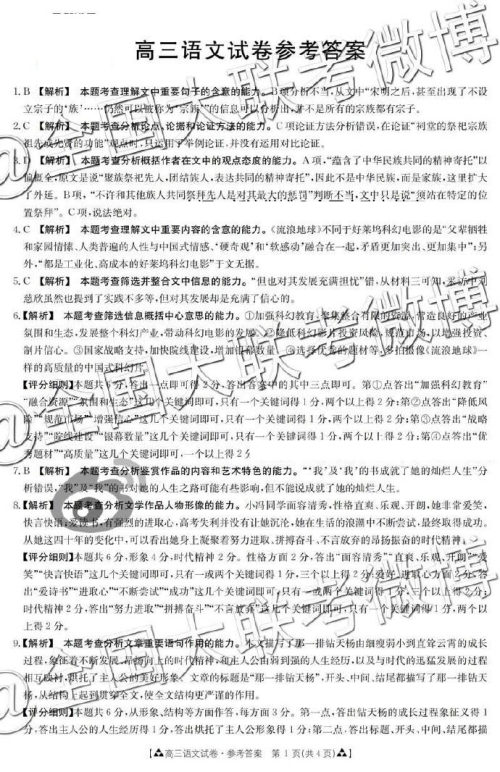 高三语文试卷参考答案
1. B 【解析】 本题考查理解文中重要句子的含意的能力。B项分析不当，从文中“宋明之后，甚至出现了不设
立宗子的‘族’……仍然可以被称为‘宗族’”的信息可以分析出，并不是所有的宗族都有宗子。
2. C 【解析】 本题考查分析论点、论据和论证方法的能力。C项论证方法分析错误，在论证“祠堂的祭祀宗
祖先或先贤的功能”观点时，只运用了举例论证，并没有运用对比论证。
3. D 【解析】 本题考查分析概括作者在文中的观点态度的能力。A项，“蕴含了中华民族共同的精神寄托”以
偏概全，原文是说“聚族祭先人，团结族人，表达共同的精神寄托”，因此不是中华民族，而是家族，这里扩大
了外延。B项，“不许和其他族人共同祭拜先人是对其最大的惩罚”判断不当，文中只是说“须站在特定的位
置祭拜”。C项，说法绝对。
4. C 【解析】 本题考查理解文中重要内容的含意的能力。《流浪地球》不同于好莱坞科幻电影的是“父辈牺牲
和家园情愫、人类普遍的人性与中国式情感、‘硬奇观’和‘软感动’融合在一起，矛盾更加突出、更加集中”；另
外，“都是工业化、高成本的好莱坞科幻电影”于文无据。
5. C 【解析】 本题考查筛选并整合文中信息的能力。“但也对其发展充满担忧”错，从材料三可知，采访中刘
慈欣虽然也提到了实践不多等，但对其发展却是充满了信心的。
6. 【解析】 本题考查筛选信息概括中心意思的能力。①加强科幻教育，聚集融合有限的资源，营造良好的产业
氛围和生态，发展整个科幻产业，带动科幻电影的发展。②降低科幻影片投资风险，规范市场，以增强投资、
制片信心。③国家战略支持，加快院线建设，增加银幕数量。④选择优质题材等，多拍摄像《流浪地球》一
样的高质量的中国式科幻片。
【评分细则】本题共6分，答出一点即可得2分，答出答案中的其中三点即可。第①点答出“加强科幻教育”
“融合资源”“氛围和生态”这几个关键词即可，只有一个关键词得1分，两个以上得2分；第②点答出“降低风
险”“规范市场”“增强信心”这几个关键词即可，只有一个关键词得1分，两个以上得2分；第③点答出“战略
支持”“院线建设”“银幕数量”这几个关键词即可，只有一个关键词得1分，两个以上得2分；第④点答出“优
秀题材”“高质量”这几个关键词即可，只有一个关键词得1分，两个以上得2分
7. B 【解析】 本题考查分析鉴赏作品的内容和艺术特色的能力。“‘我’及‘我’的书成就了她的灿烂人生”分
析错误，“我”及“我”的书对她的人生之路可能有些影响，但不能说成就了她的灿烂人生。
8. 【解析】 本题考查分析文学作品人物形像的能力。小冯同学面容清秀，性格直爽、乐观、开朗，她非常爱笑，
快言快语；爱读书，有强烈的进取心，高考失利并没有让她沉沦，她在生活的浪潮中不断尝试，最终取得成功。
从她这四十年的变化中，可以看出她身上凝聚着努力进取、拼搏奋斗、不言放弃的昂扬振奋的时代精神。
【评分细则】本题共6分，形象4分，时代精神2分。性格方面2分，答出“面容清秀”“直爽、乐观、开朗”“爱
笑”“快言快语”这几个关键词即可，只有一或两个关键词得1分，三个以上得2分；爱好、进取心方面2分，答
出“爱诗书”“进取心”“不断尝试”“成功”这几个关键词即可，只有一或两个关键词得1分，三个以上得2分；
时代精神2分，答出“努力进取”“拼搏奋斗”“不言放弃”这几个关键词即可，只有一个关键词得1分，两个以
上得2分。
9. 【解析】 本题考查分析文章重要语句作用的能力。本文描写了那一排钻天杨由细瘦弱小到直耸云霄的成长
过程，象征着不断发展、昂扬向上的时代精神，和主人公由弱到强的人生经历，以及与时代的迅猛发展的过程
相互映衬，烘托了主人公的美好形象。文章的标题是“那一排钻天杨”，开头、中间、结尾都描写了那一排钻天
杨，从结构上起到贯穿全文，使全文结构更严谨的作用。
【评分细则】本题共6分，从形象、结构等方面作答，每方面3分。第一点，答出钻天杨的成长过程象征义得1
分，答出主人公的人生经历得1分，答出烘托了主人公形象得1分；第二点，答出标题、开头、中间、结尾都描
【高三语文试卷·参考答案 第1页(共4页)】
@全国大联考微博
@全国大联考微博